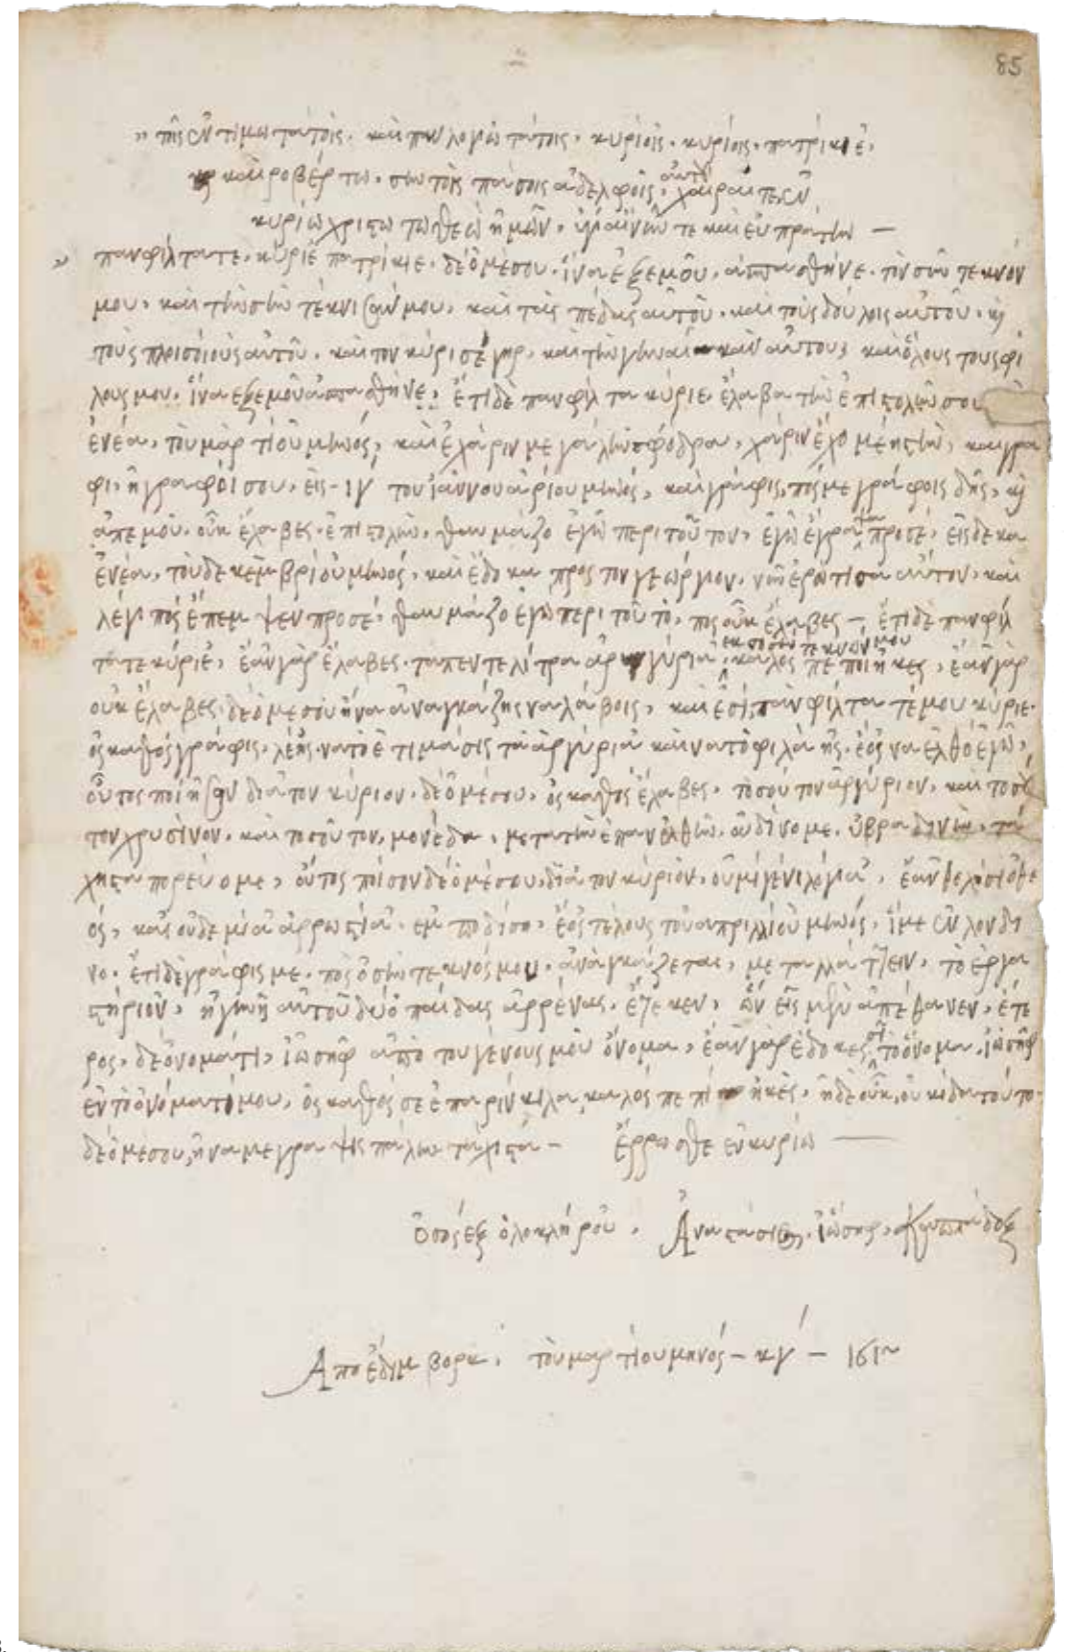 85
τῆς ἐντιμωτάτοις. καὶ πανλογιωτάτοις, κυρίοις. κυρίοις. πατρίκιε,
καὶ ροβέρτω. σὺν τοῖς πάσοις ἀδελφοῖς, αὐτῶν χαίραιτε ἐν
κυρίω χριστω τω θεῶ ἡμῶν. ὑγιαίνειν τε καὶ εὐπράτειν —
πανφίλτατε. κύριέ πατρίκιε. δέομέσου. ἵνα ἐξεμοῦ. ἀσπασθήνε. τὸν σὺν τεκνόν
μου, καὶ τὴν σὴν τέκνισάν μου, καὶ τὰς πέδας αὐτοῦ. καὶ τοὺς δούλοις αὐτοῦ. κὶ
τοὺς πλισσίους αὐτοῦ. καὶ τον κύρι σέγηρ, καὶ τὴν γυναίκαν αὐτου, καὶ ὅλους τους φί
λους μου. ἵνα εξεμοῦ ἀσπασθήνε, ἔτι δὲ πανφίλτα κύριε, ἐλαβα τὴν ἐπιστολήν σου
ἐνέα, τοῦ μαρτίου μηνός, καὶ ἐχάριν μεγάλην σφόδρα, χάριν ἔχο μέγιστην, καὶ γρα
φι, ἡ γραφῆ σου, εἰς – ιγ του ἰαννουαρίου μηνός, καὶ γράφις, πός με γράφοις δὴς, κὶ
ἀπ εμοῦ. οὐκ ἐλαβες. ἐπιστολήν, θαυμάζο ἐγῶ περὶ τοῦτον, ἐγῶ ἐγραψα προσέ, εἰς δεκα
ἐνέα, τοῦ δεκεμβρίου μηνός, καὶ ἔδοκα προς τον γεώργιον, νῦν ἐρώτισα αὐτὸν, καὶ
λέγι πός ἔπεμψεν προσέ, θαυμάζο ἐγω περὶ τοῦτο, πος οὐκ ἐλαβες – ἔτι δὲ πανφίλ
τατε κύριέ, ἐὰν γὰρ ἔλαβες. τα πεντε λίτρα ἀργύρια, εκ τοῦ σοῦ τεκνόν μου καλός πεποίηκες, ἐὰν γὰρ
οὐκ ἔλαβες. δέομέ σου ἵνα ἀναγκάζης να λάβοις, καὶ ἐσὺ πανφίλτατέ μου κύριε.
ὁς καθός γράφις. λέγης. να το ἐτιμάσις τὰ ἀργύρια καὶ να το φιλάης. ἑός να ἐλθό ἐγῶ,
οὕτος ποίησον διὰ τον κύριον. δέομέσου, ὁς καθός ἔλαβες. τοσοῦτον ἀργύριον, καὶ τοσοῦ
τον χρυσίνον. καὶ τοσοῦτον, μονέδα, μετα τὴν ἐπανελθῆν. οὐ δίνομε. ὑβραδυνιν, τά
χιστα πορεύομε, οὕτος ποίσον δέομέσου, διὰ τον κύριον, οὐ μὶ γένι λόγια, ἐὰν θελήσι ὁ θε
ός, καὶ οὐδεμία ἀρρωστία. εμποδίσι, ἑός τέλους τοῦ απριλλίου μηνός, ἵμε ἐν λονδι
νο. ἔτι δὲ γράφις μέ. πός ὁ σὺν τεκνός μου. ἀναγκάζεται, μεταλλάττειν, τὸ ἐργα
στήριον, ἡ γυνὴ αὐτοῦ δύο παίδας ἀρρένας. ἔτεκεν, ὧν εἷς μὲν ἀπέθανεν, ἑτε
ρος, δὲ ὀνοματι, ἰωσηφ ἀπὸ του γένους μοῦ ὄνομα, ἐὰν γὰρ ἔδοκες σὶ τὸ ὄνομα, ἰωσηφ
εν τὸ ὀνόματόμου, ὁς καθός σὲ ἐπαρίνκιλα, καλός πεπίηκές, ἡ δὲ οὐκ, οὐκ ίδα τοῦτο.
δέομέσου, ἵνα με γραψις πάλιν τάχιστα – ἔρρωσθε ἐν κυρίω —
Ὁ σός ἐξ ὁλοκλήρου, Ἀναστάσιος, ἰωσηφ, ὁ καππάδοξ
Απο ἐδιμβορκ. τοῦ μαρτίου μηνός – κγ – 161